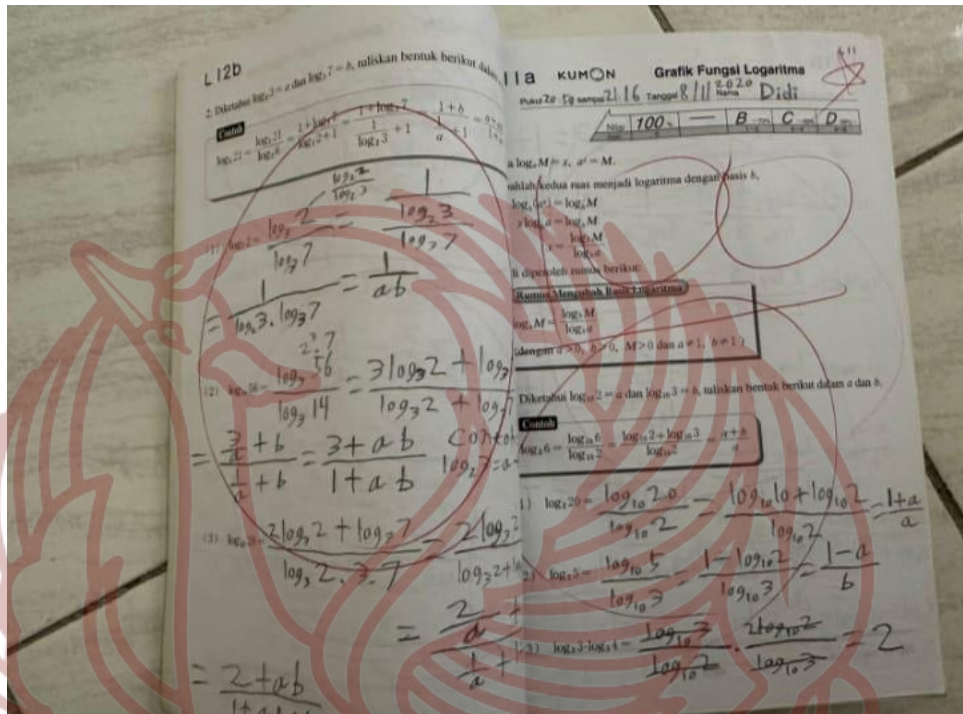 L12b
2. Diketahui log₂3 = a dan log₃7 = b, tuliskan bentuk berikut dalam
Contoh
log₆21 = log₃21/log₃6 = (1 + log₃7)/(log₃2 + 1) = (1 + log₃7)/(1/log₂3 + 1) = (1 + b)/(1/a + 1)
log₂2/log₂3
(1) log₇2 = log₃2/log₃7 = (1/log₂3)/log₃7
= 1/(log₂3 · log₃7) = 1/ab
2³·7
(2) log₁₄56 = log₃56/log₃14 = (3log₃2 + log₃)/(log₃2 + log₃7
= (3/a + b)/(1/a + b) = (3 + ab)/(1 + ab)
log₂3 = a
(3) (2log₃2 + log₃7)/(log₃2·3·7) = 2log₃2/(log₃2 +
= 2/a +/1/a +
= 2 + ab
11a KUMON Grafik Fungsi Logaritma
Pukul 20:50 sampai 21:16 Tanggal 8/11/2020 Nama Didi
Nilai 100% — B C D
a logₐM = x, aˣ = M.
ubahlah kedua ruas menjadi logaritma dengan basis b,
log_b(aˣ) = log_bM
x log_b a = log_bM
x = log_bM/log_b a
di diperoleh rumus berikut:
Rumus Mengubah Basis Logaritma
logₐM = log_bM/log_b a
(dengan a > 0, b > 0, M > 0 dan a ≠ 1, b ≠ 1)
Diketahui log₁₀2 = a dan log₁₀3 = b, tuliskan bentuk berikut dalam a dan b.
Contoh
log₂6 = log₁₀6/log₁₀2 = (log₁₀2 + log₁₀3)/log₁₀2 = (a + b)/a
1) log₂20 = log₁₀20/log₁₀2 = (log₁₀10 + log₁₀2)/log₁₀2 = (1 + a)/a
2) log₃5 = log₁₀5/log₁₀3 = (1 − log₁₀2)/log₁₀3 = (1 − a)/b
3) log₂3·log₃4 = log₁₀3/log₁₀2 · 2log₁₀2/log₁₀3 = 2